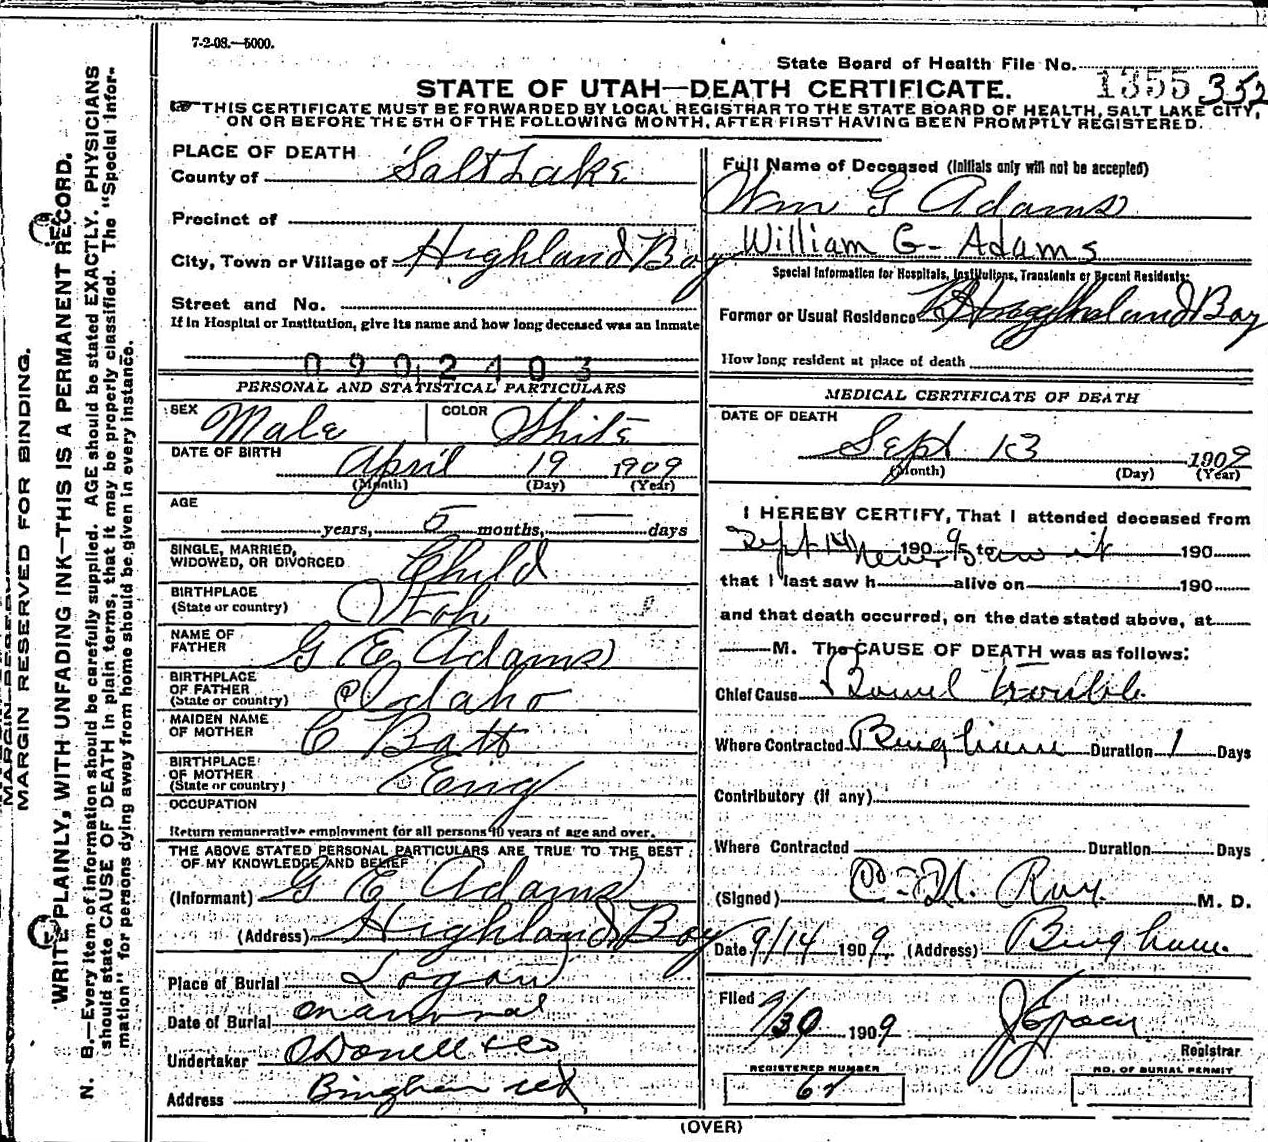 7-2-08.—5000.
State Board of Health File No. 1355 352
STATE OF UTAH—DEATH CERTIFICATE.
☞ THIS CERTIFICATE MUST BE FORWARDED BY LOCAL REGISTRAR TO THE STATE BOARD OF HEALTH, SALT LAKE CITY,
ON OR BEFORE THE 5TH OF THE FOLLOWING MONTH, AFTER FIRST HAVING BEEN PROMPTLY REGISTERED.
PLACE OF DEATH
County of Salt Lake
Precinct of
City, Town or Village of Highland Boy
Street and No.
If in Hospital or Institution, give its name and how long deceased was an inmate
0902403
PERSONAL AND STATISTICAL PARTICULARS
SEX Male COLOR White
DATE OF BIRTH
April 19 1909
(Month) (Day) (Year)
AGE
years, 5 months, — days
SINGLE, MARRIED,
WIDOWED, OR DIVORCED Child
BIRTHPLACE
(State or country) Utah
NAME OF
FATHER G E Adams
BIRTHPLACE
OF FATHER
(State or country) Idaho
MAIDEN NAME
OF MOTHER C Batt
BIRTHPLACE
OF MOTHER
(State or country) Eng
OCCUPATION
Return remunerative employment for all persons 10 years of age and over.
THE ABOVE STATED PERSONAL PARTICULARS ARE TRUE TO THE BEST
OF MY KNOWLEDGE AND BELIEF
(Informant) G E Adams
(Address) Highland Boy
Place of Burial Logan
Date of Burial
Undertaker O Donell & Co
Address Bingham
Full Name of Deceased (Initials only will not be accepted)
Wm G Adams
William G- Adams
Special Information for Hospitals, Institutions, Transients or Recent Residents:
Former or Usual Residence Highland Boy
How long resident at place of death
MEDICAL CERTIFICATE OF DEATH
DATE OF DEATH
Sept 13 1909
(Month) (Day) (Year)
I HEREBY CERTIFY, That I attended deceased from
Sept 14 1909 to never saw it 190
that I last saw h alive on 190
and that death occurred, on the date stated above, at
M. The CAUSE OF DEATH was as follows:
Chief Cause Bowel Trouble
Where Contracted Bingham Duration 1 Days
Contributory (if any)
Where Contracted Duration Days
(Signed) Ray M. D.
Date 9/14 1909 (Address) Bingham
Filed 9/30 1909
Registrar
REGISTERED NUMBER
NO. OF BURIAL PERMIT
62
(OVER)
MARGIN RESERVED FOR BINDING.
WRITE PLAINLY, WITH UNFADING INK—THIS IS A PERMANENT RECORD.
N. B.—Every item of information should be carefully supplied. AGE should be stated EXACTLY. PHYSICIANS
should state CAUSE OF DEATH in plain terms, that it may be properly classified. The "Special Infor-
mation" for persons dying away from home should be given in every instance.